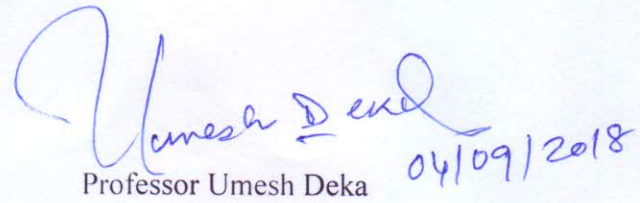 Umesh Deka
04/09/2018
Professor Umesh Deka